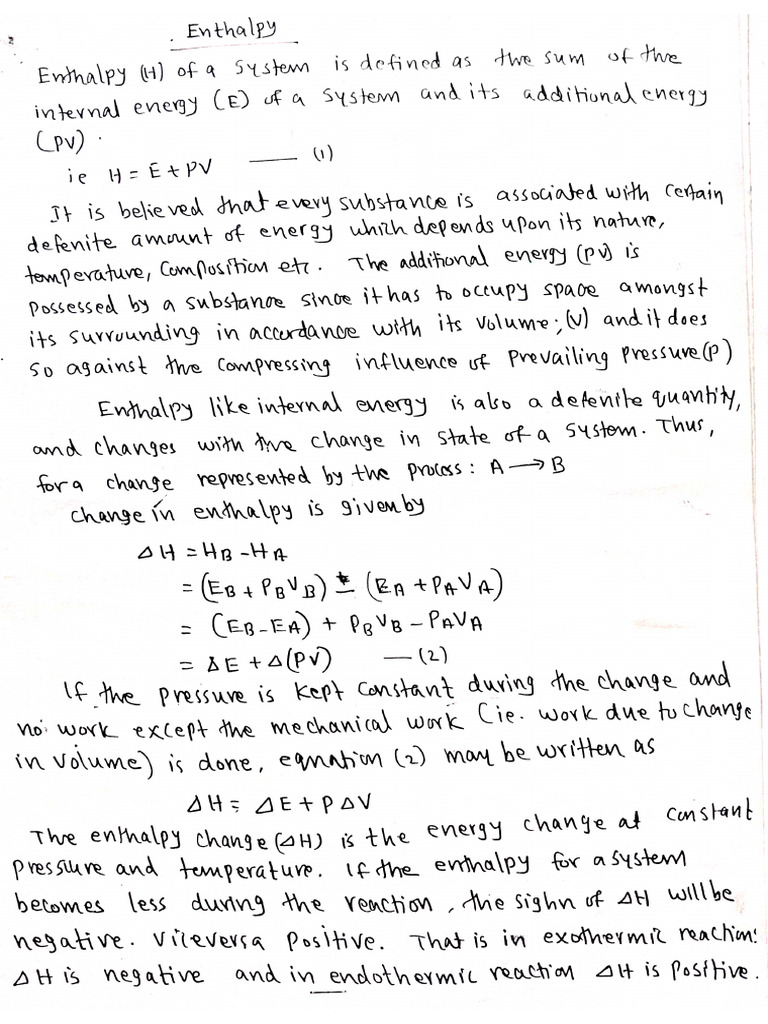 Enthalpy
Enthalpy (H) of a system is defined as the sum of the
internal energy (E) of a system and its additional energy
(PV).
ie H = E + PV —— (1)
It is believed that every substance is associated with certain
defenite amount of energy which depends upon its nature,
temperature, composition etc. The additional energy (PV) is
possessed by a substance since it has to occupy space amongst
its surrounding in accordance with its volume; (V) and it does
so against the compressing influence of prevailing pressure (P)
Enthalpy like internal energy is also a defenite quantity,
and changes with the change in state of a system. Thus,
for a change represented by the process: A → B
change in enthalpy is given by
ΔH = HB - HA
= (EB + PBVB) - (EA + PAVA)
= (EB - EA) + PBVB - PAVA
= ΔE + Δ(PV) — (2)
If the pressure is kept constant during the change and
no work except the mechanical work (ie. work due to change
in volume) is done, equation (2) may be written as
ΔH = ΔE + PΔV
The enthalpy change (ΔH) is the energy change at constant
pressure and temperature. If the enthalpy for a system
becomes less during the reaction, the sighn of ΔH will be
negative. Viceversa positive. That is in exothermic reaction:
ΔH is negative and in endothermic reaction ΔH is positive.